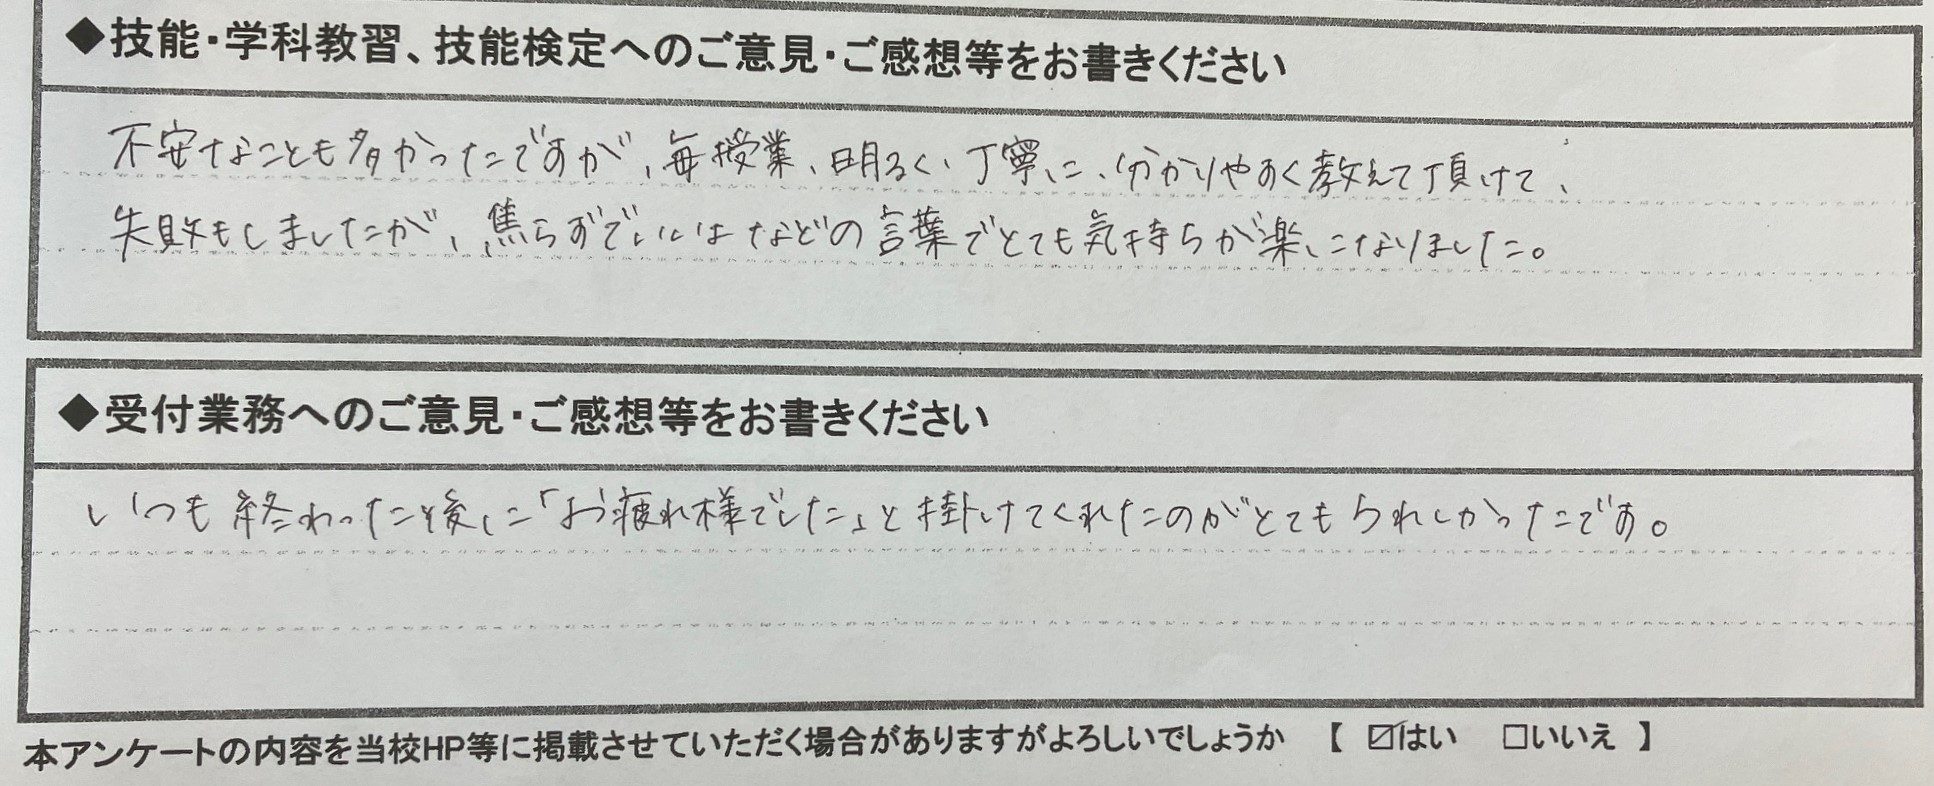 ◆技能・学科教習、技能検定へのご意見・ご感想等をお書きください
不安なことも多かったですが、毎授業、明るく、丁寧に、分かりやすく教えて頂けて、
失敗もしましたが、焦らずでいいよなどの言葉でとても気持ちが楽になりました。
◆受付業務へのご意見・ご感想等をお書きください
いつも終わった後に「お疲れ様でした」と掛けてくれたのがとてもうれしかったです。
本アンケートの内容を当校HP等に掲載させていただく場合がありますがよろしいでしょうか 【 ☑はい □いいえ 】